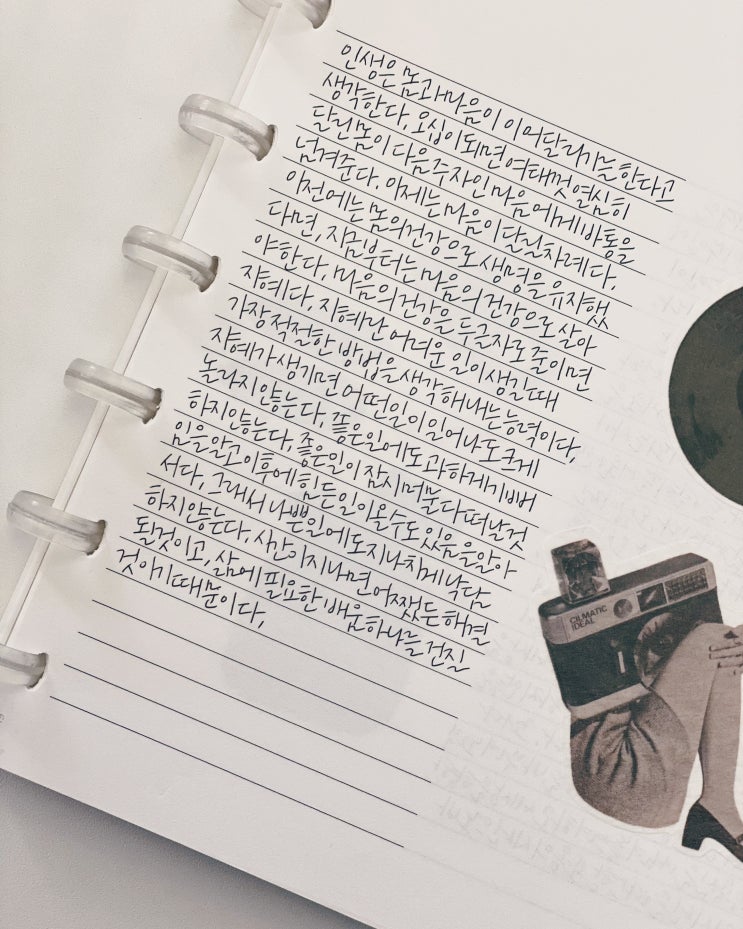 인생은 몸과 마음이 이어달리기를 한다고
생각한다. 오십이 되면 여태껏 열심히
달린 몸이 다음 주자인 마음에게 바통을
넘겨준다. 이제는 마음이 달릴 차례다.
이전에는 몸의 건강으로 생명을 유지했
다면, 지금부터는 마음의 건강으로 살아
야 한다. 마음의 건강을 두 글자로 줄이면
지혜다. 지혜란 어려운 일이 생길 때
가장 적절한 방법을 생각해내는 능력이다.
지혜가 생기면 어떤 일이 일어나도 크게
놀라지 않는다. 좋은 일에도 과하게 기뻐
하지 않는다. 좋은 일이 잠시 머물다 떠날 것
임을 알고 이후에 힘든 일이 올 수도 있음을 알아
서다. 그래서 나쁜 일에도 지나치게 낙담
하지 않는다. 시간이 지나면 어쨌든 해결
될 것이고, 삶에 필요한 배움 하나를 건질
것이기 때문이다.
CILMATIC
IDEAL